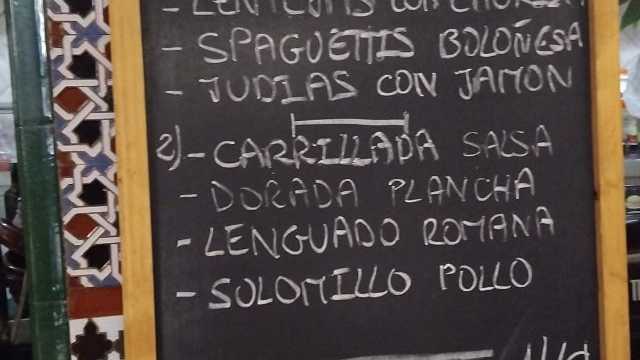 - LENTEJAS CON CHORIZO
- SPAGUETTIS BOLOÑESA
- JUDIAS CON JAMON
2) - CARRILLADA SALSA
- DORADA PLANCHA
- LENGUADO ROMANA
- SOLOMILLO POLLO